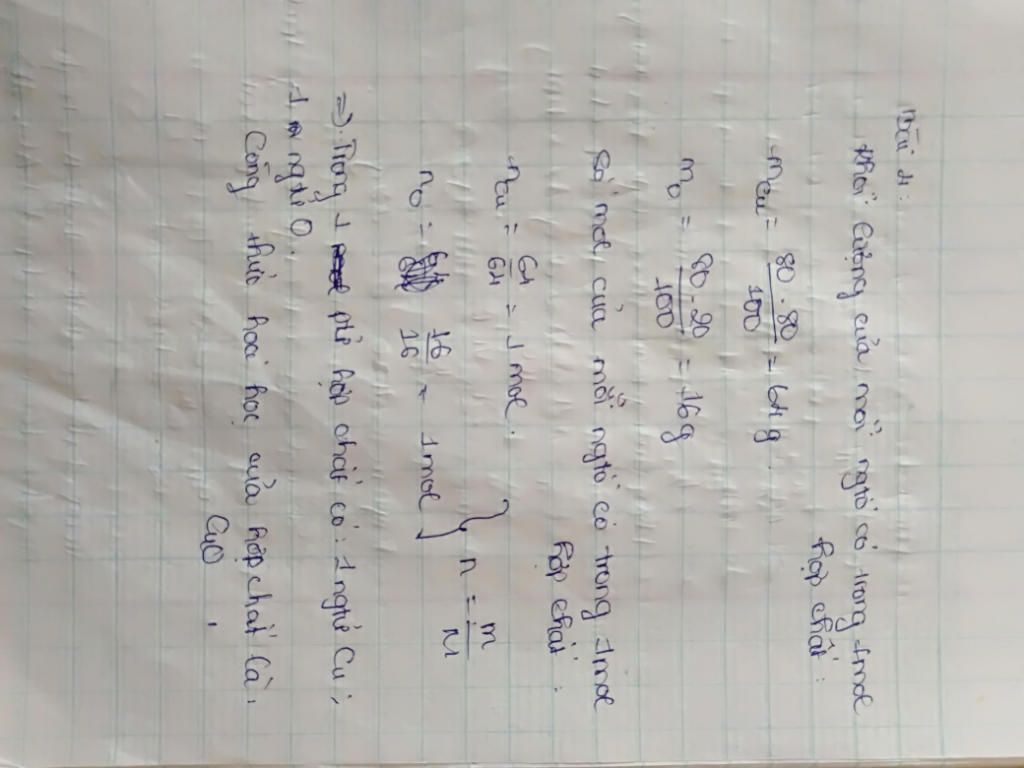 Bài 4:
Khối lượng của mỗi ngtố có trong 1mol
hợp chất:
mCu = 80 . 80 / 100 = 64g
mO = 80 . 20 / 100 = 16g
Số mol của mỗi ngtố có trong 1mol
hợp chất:
nCu = 64 / 64 = 1 mol.
nO = 16 / 16 = 1mol } n = m / M
=> Trong 1 ptử hợp chất có: 1 ngtử Cu;
1 ngtử O.
Công thức hoá học của hợp chất là:
CuO.